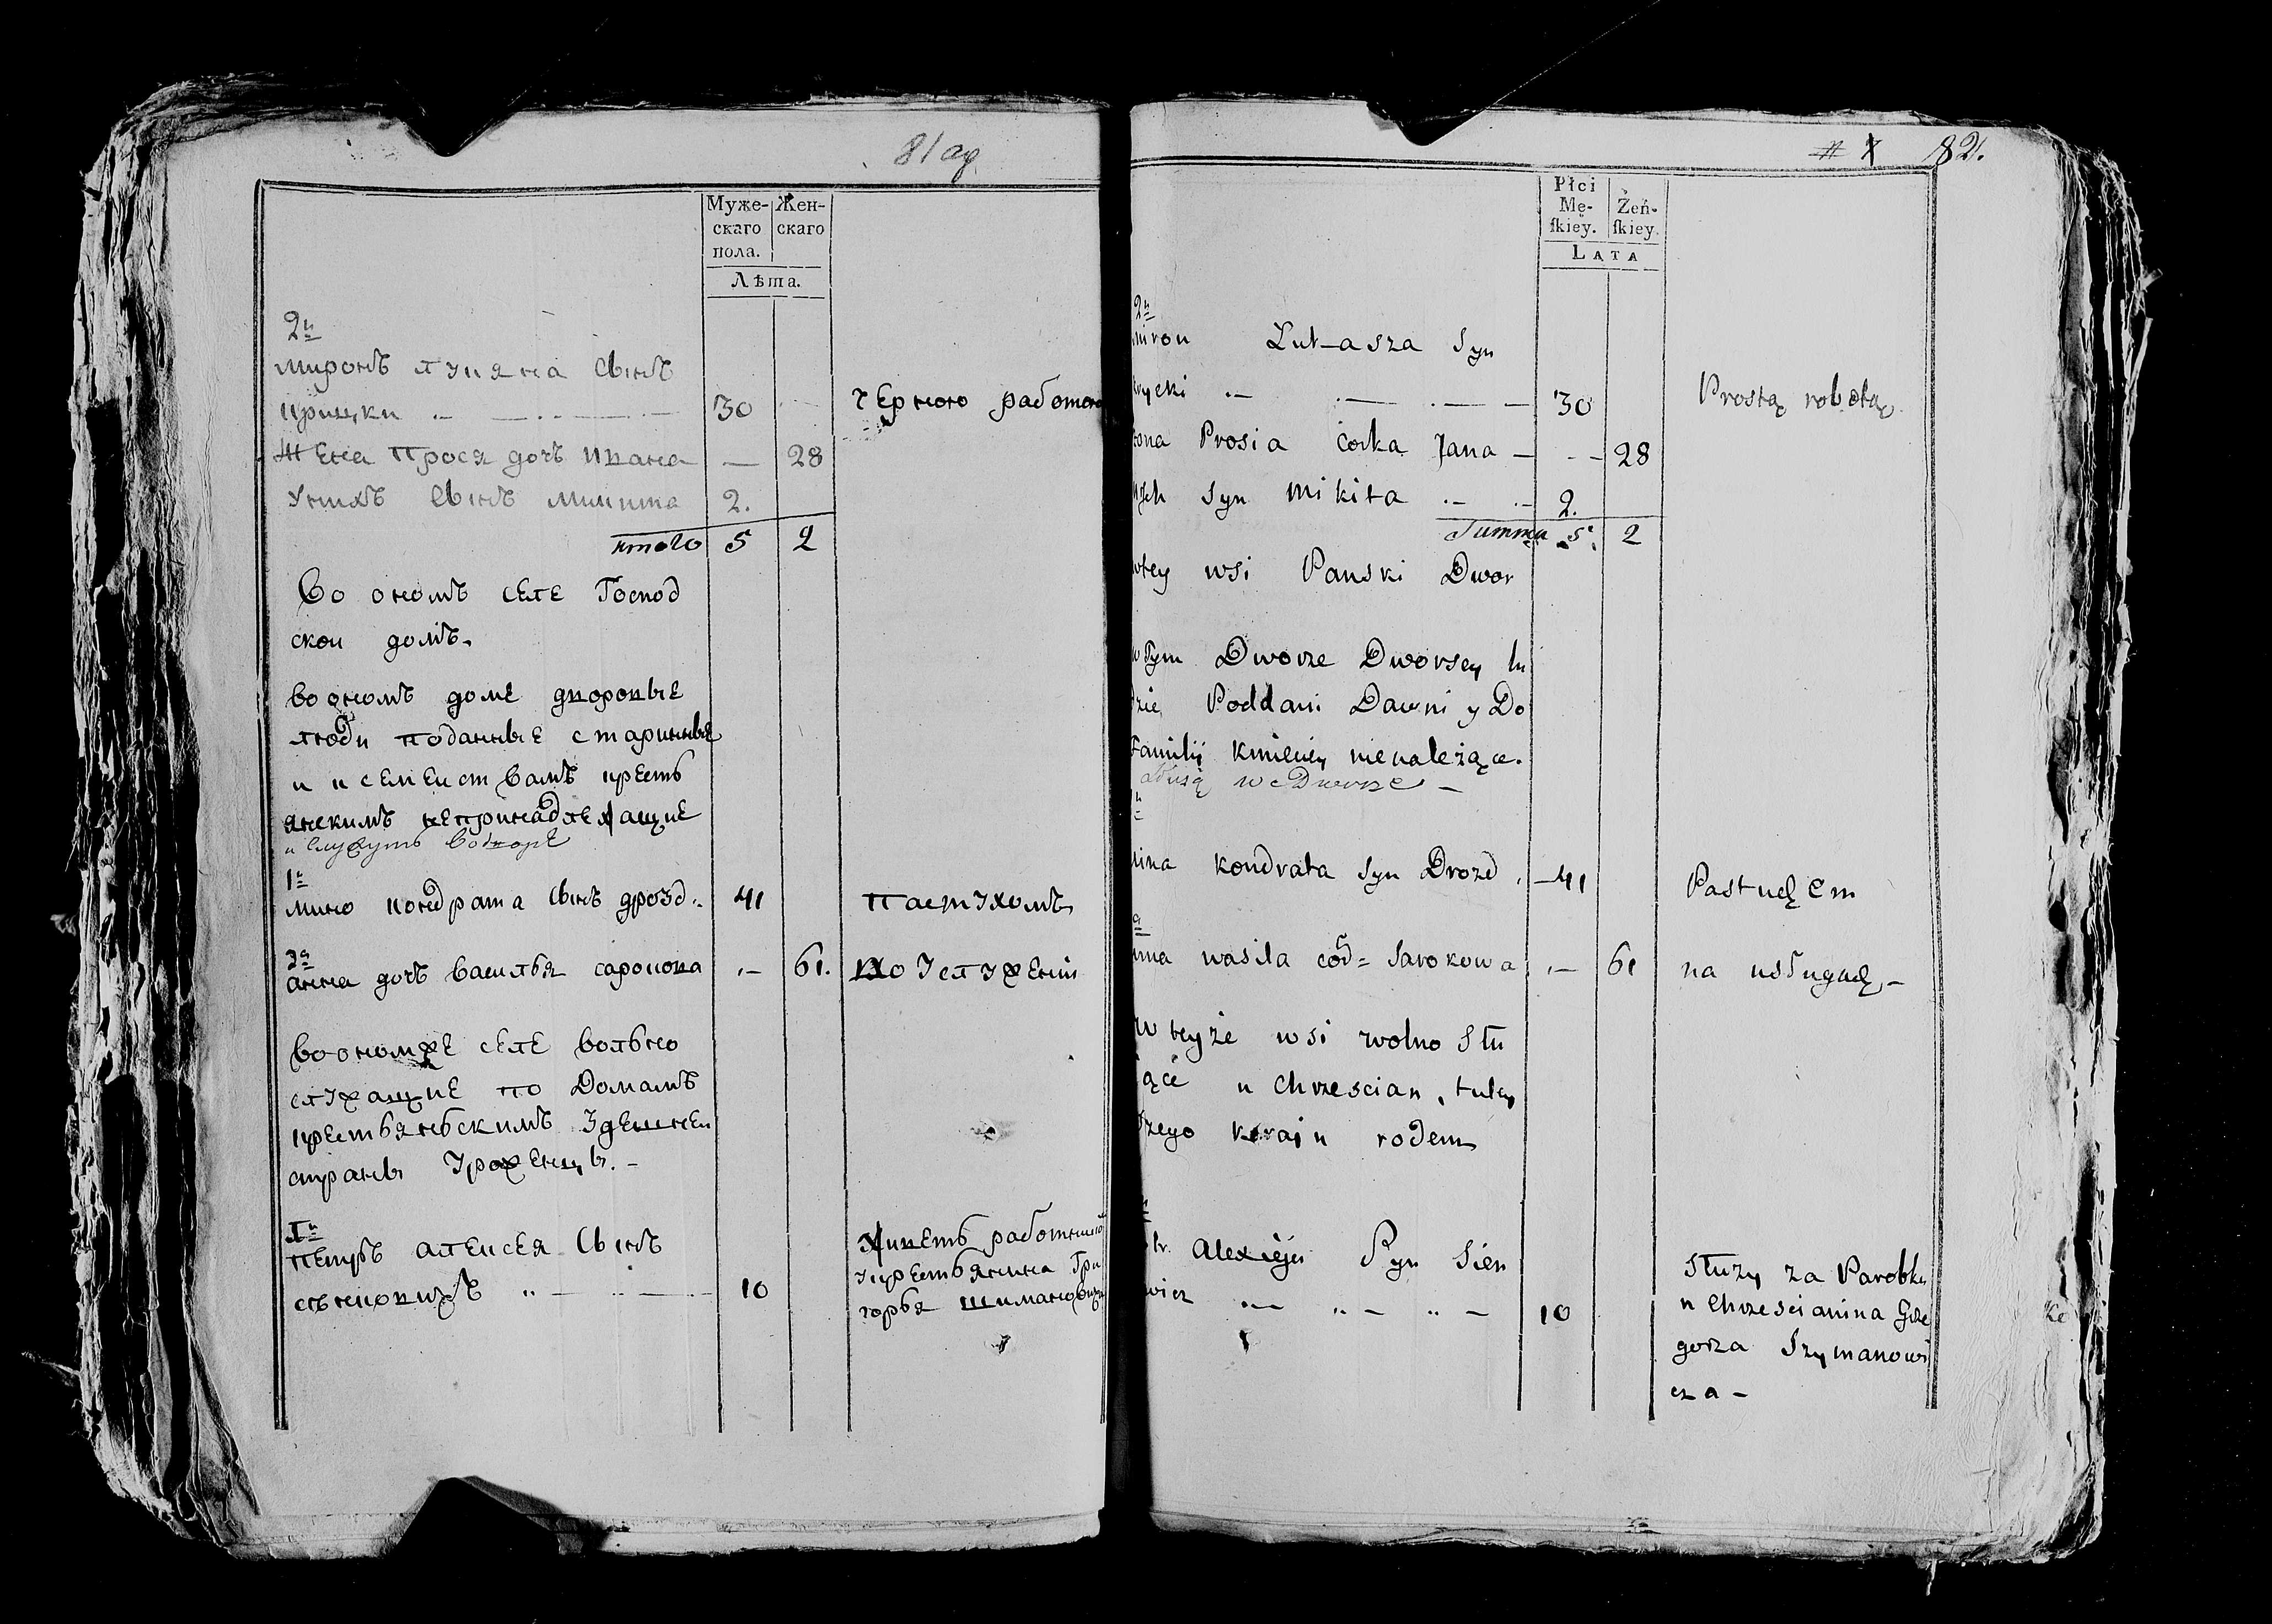 81 об
Муже-
скаго
пола.
Жен-
скаго
Лѣта.
2й
миронъ лукяна Сынъ
крицки 30 чЕрною работою
жЕна Прося дочъ ивана — 28
У нихъ Сынъ микита 2.
итого 5 2
Во ономъ сЕлЕ Господ
скои домъ.
во ономъ домЕ дворовыЕ
люди поданныЕ старинныЕ
и к сЕмЕиствамъ крЕсть
янскимъ нЕпринадлЕжащиЕ
и служутъ во дворЕ
1й
мино кондрата Сынъ дрозд 41 Пастухомъ
2я
анна дочъ Василья сарокова 61. в услужЕнии
Во ономжЕ сЕлЕ вольно
служащиЕ по Домамъ
крЕстьянскимъ здЕшнЕи
страны урожЕнцы.
1й
пЕтръ алЕксЕя Сынъ
сЕнкЕвичъ 10
живЕтъ работникомъ
у крЕстьянина Гри
горья шимановича
82.
Płci
Mę-
ſkiey.
Żeń-
ſkiey.
LATA
2й
miron Lukasza Syn
rycki 30 Prostą robotą
żona Prosia Corka Jana — 28
nich Syn Mikita 2.
Summa 5 2
wtey wsi Panski Dwor
w tym Dworze Dworscy lu
dzie Poddani Dawni y Do
familij kmieciey nienależące.
służą w Dworze —
mina kondrata Syn Drozd — 41 Pastuchem
anna wasila cor= Sarokowa — 61 na usługach —
W teyże wsi wolno Słu
żące u Chrzescian, tutey
szego kraju rodem
Alexieja Syn Sien
wicz 10
Służy za Parobka
u Chrzescianina Grze
gorza Szymanowi
cza —